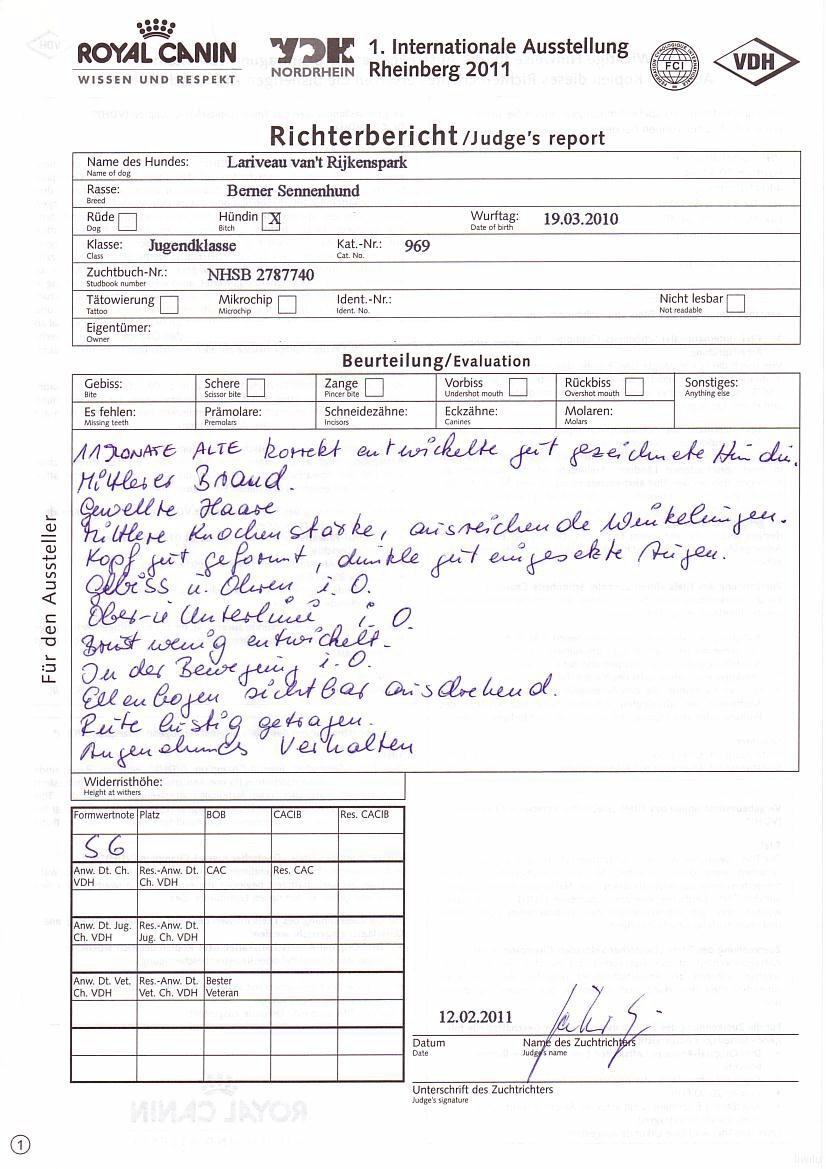 ROYAL CANIN
WISSEN UND RESPEKT
VDH
NORDRHEIN
1. Internationale Ausstellung
Rheinberg 2011
FCI
VDH
Richterbericht/Judge's report
Name des Hundes: Lariveau van't Rijkenspark
Name of dog
Rasse: Berner Sennenhund
Breed
Rüde Hündin X Wurftag: 19.03.2010
Dog Bitch Date of birth
Klasse: Jugendklasse Kat.-Nr.: 969
Class Cat. No.
Zuchtbuch-Nr.: NHSB 2787740
Studbook number
Tätowierung Mikrochip Ident.-Nr.: Nicht lesbar
Tattoo Microchip Ident. No. Not readable
Eigentümer:
Owner
Beurteilung/Evaluation
Gebiss: Schere Zange Vorbiss Rückbiss Sonstiges:
Bite Scissor bite Pincer bite Undershot mouth Overshot mouth Anything else
Es fehlen: Prämolare: Schneidezähne: Eckzähne: Molaren:
Missing teeth Premolars Incisors Canines Molars
11 MONATE ALTE korrekt entwickelte gut gezeichnete Hündin.
Mittlerer Brand.
Gewellte Haare
Mittlere Knochenstärke, ausreichende Winkelungen.
Kopf gut geformt, dunkle gut eingesetzte Augen.
Gebiss u. Ohren i. O.
Ober-u Unterlinie i. O.
Brust wenig entwickelt.
In der Bewegung i. O.
Ellenbogen sichtbar ausdrehend.
Rute lustig getragen.
Angenehmes Verhalten
Für den Aussteller
Widerristhöhe:
Height at withers
Formwertnote Platz BOB CACIB Res. CACIB
SG
Anw. Dt. Ch. Res.-Anw. Dt. CAC Res. CAC
VDH Ch. VDH
Anw. Dt. Jug. Res.-Anw. Dt.
Ch. VDH Jug. Ch. VDH
Anw. Dt. Vet. Res.-Anw. Dt. Bester
Ch. VDH Vet. Ch. VDH Veteran
12.02.2011
Datum Name des Zuchtrichters
Date Judge's name
Unterschrift des Zuchtrichters
Judge's signature
1